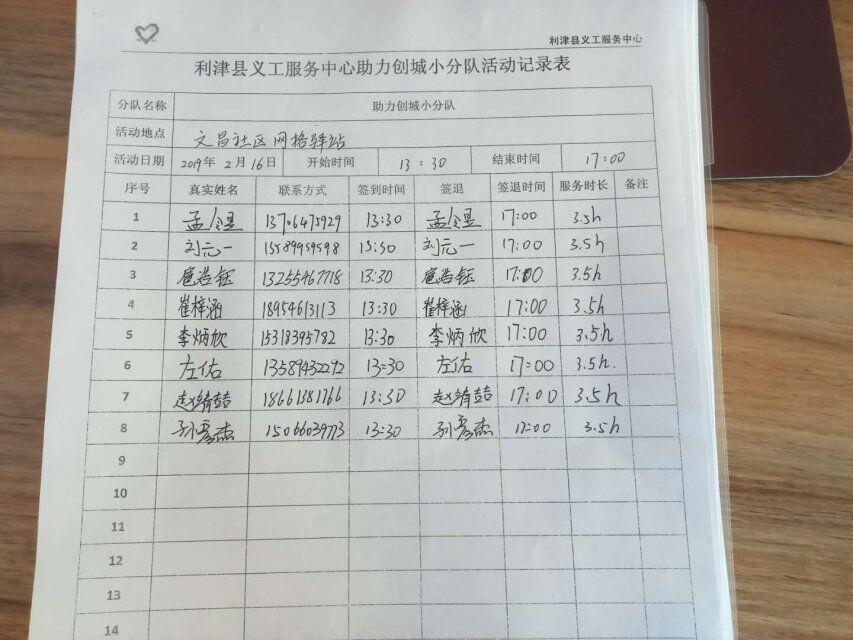 利津县义工服务中心
利津县义工服务中心助力创城小分队活动记录表
分队名称 助力创城小分队
活动地点 文昌社区网格驿站
活动日期 2019年2月16日 开始时间 13:30 结束时间 17:00
序号 真实姓名 联系方式 签到时间 签退 签退时间 服务时长 备注
1 13706475929 13:30 17:00 3.5h
2 刘元一 15589959598 15:30 刘元一 17:00 3.5h
3 13255467718 13:30 17:00 3.5h
4 崔梓涵 18954613113 13:30 崔梓涵 17:00 3.5h
5 李炳欣 15318395782 13:30 李炳欣 17:00 3.5h
6 左佑 13589432292 13:30 左佑 17:00 3.5h.
7 赵靖喆 18661381766 13:30 赵靖喆 17:00 3.5h
8 孙彦杰 15066039773 13:30 孙彦杰 17:00 3.5h
9
10
11
12
13
14